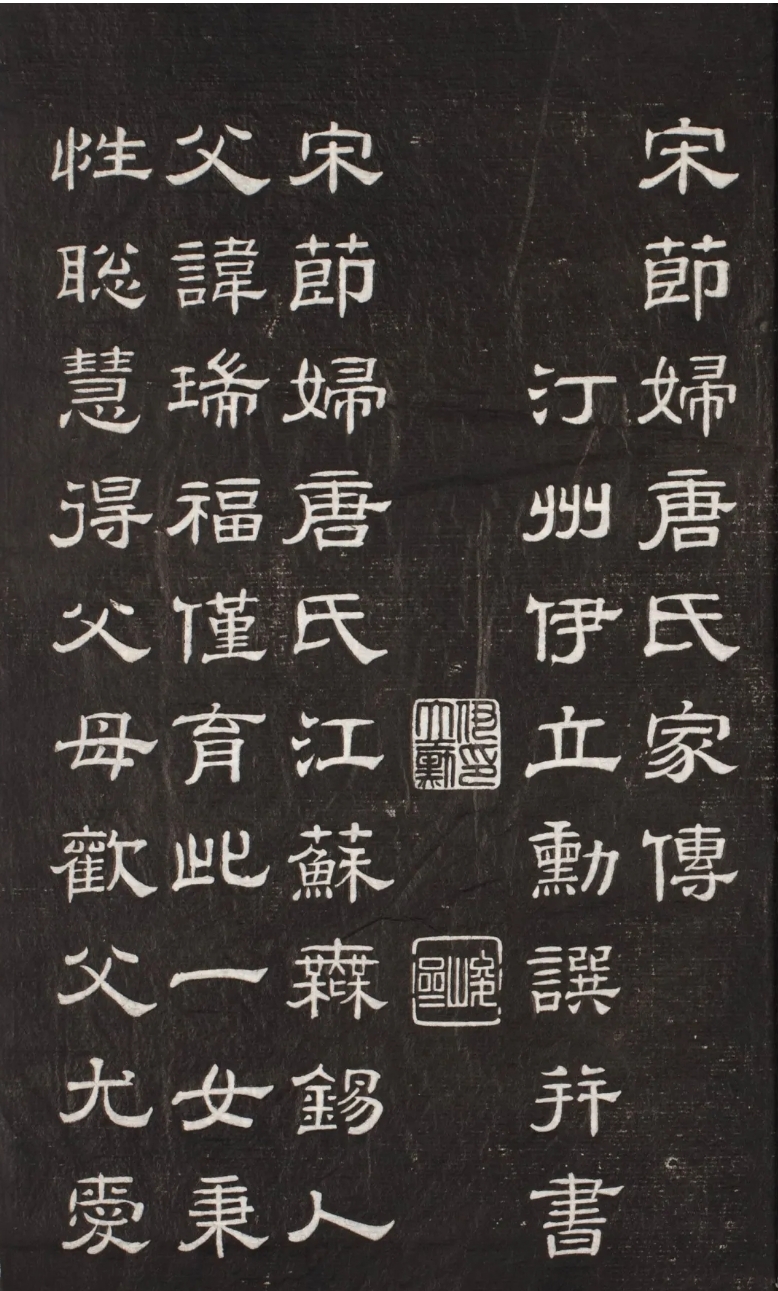 宋節婦唐氏家傳
汀州伊立勳撰并書
伊立勳印
峻齋
宋節婦唐氏江蘇無錫人
父諱瑞福僅育此一女秉
性聡慧得父母歡父尤愛